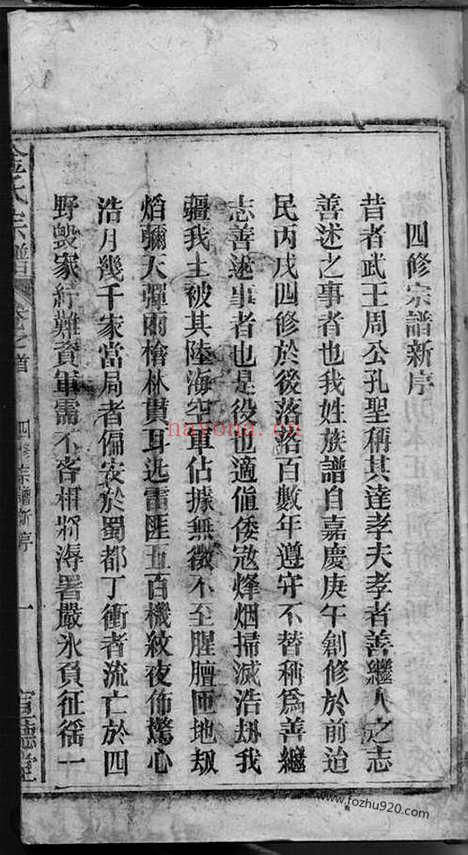 四修宗譜新序
昔者武王周公孔聖稱其達孝夫孝者善繼人之志
善述之事者也我姓族譜自嘉慶庚午創修於前迨
民丙戌四修於後落落百數年遵守不替稱為善繼
志善述事者也是役也適值倭寇烽烟掃滅浩劫我
疆我土被其陸海空軍佔據無微不至腥膻匝地劫
焰彌天彈雨槍林貫耳迅雷匪五百機紋夜佈驚心
浩月幾千家當局者偏安於蜀都丁衝者流亡於四
野毀家紓難資軍需不吝相將溽暑嚴氷負征徭一
氏宗譜
卷之首
四修宗譜新序
一
德堂
nayona.cn
www.fozhu920.com